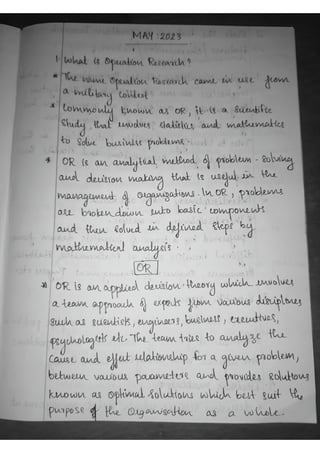 MAY:2023
1 What is Operation Research?
* The name Operation Research came in use from
a military context
* Commonly known as OR, it is a scientific
study that involves statistics and mathematics
to solve business problems.
* OR is an analytical method of problem-solving
and decision making that is useful in the
management of Organizations. In OR, problems
are broken down into basic components
and then solved in defined steps by
mathematical analysis.
OR
* OR is an applied decision theory which involves
a team approach of experts from various disciplines
such as scientists, engineers, business, executives,
psychologists etc. The team tries to analyze the
cause and effect relationship for a given problem,
between various parameters and provides solutions
known as optimal solutions which best suit the
purpose of the Organisation as a whole.